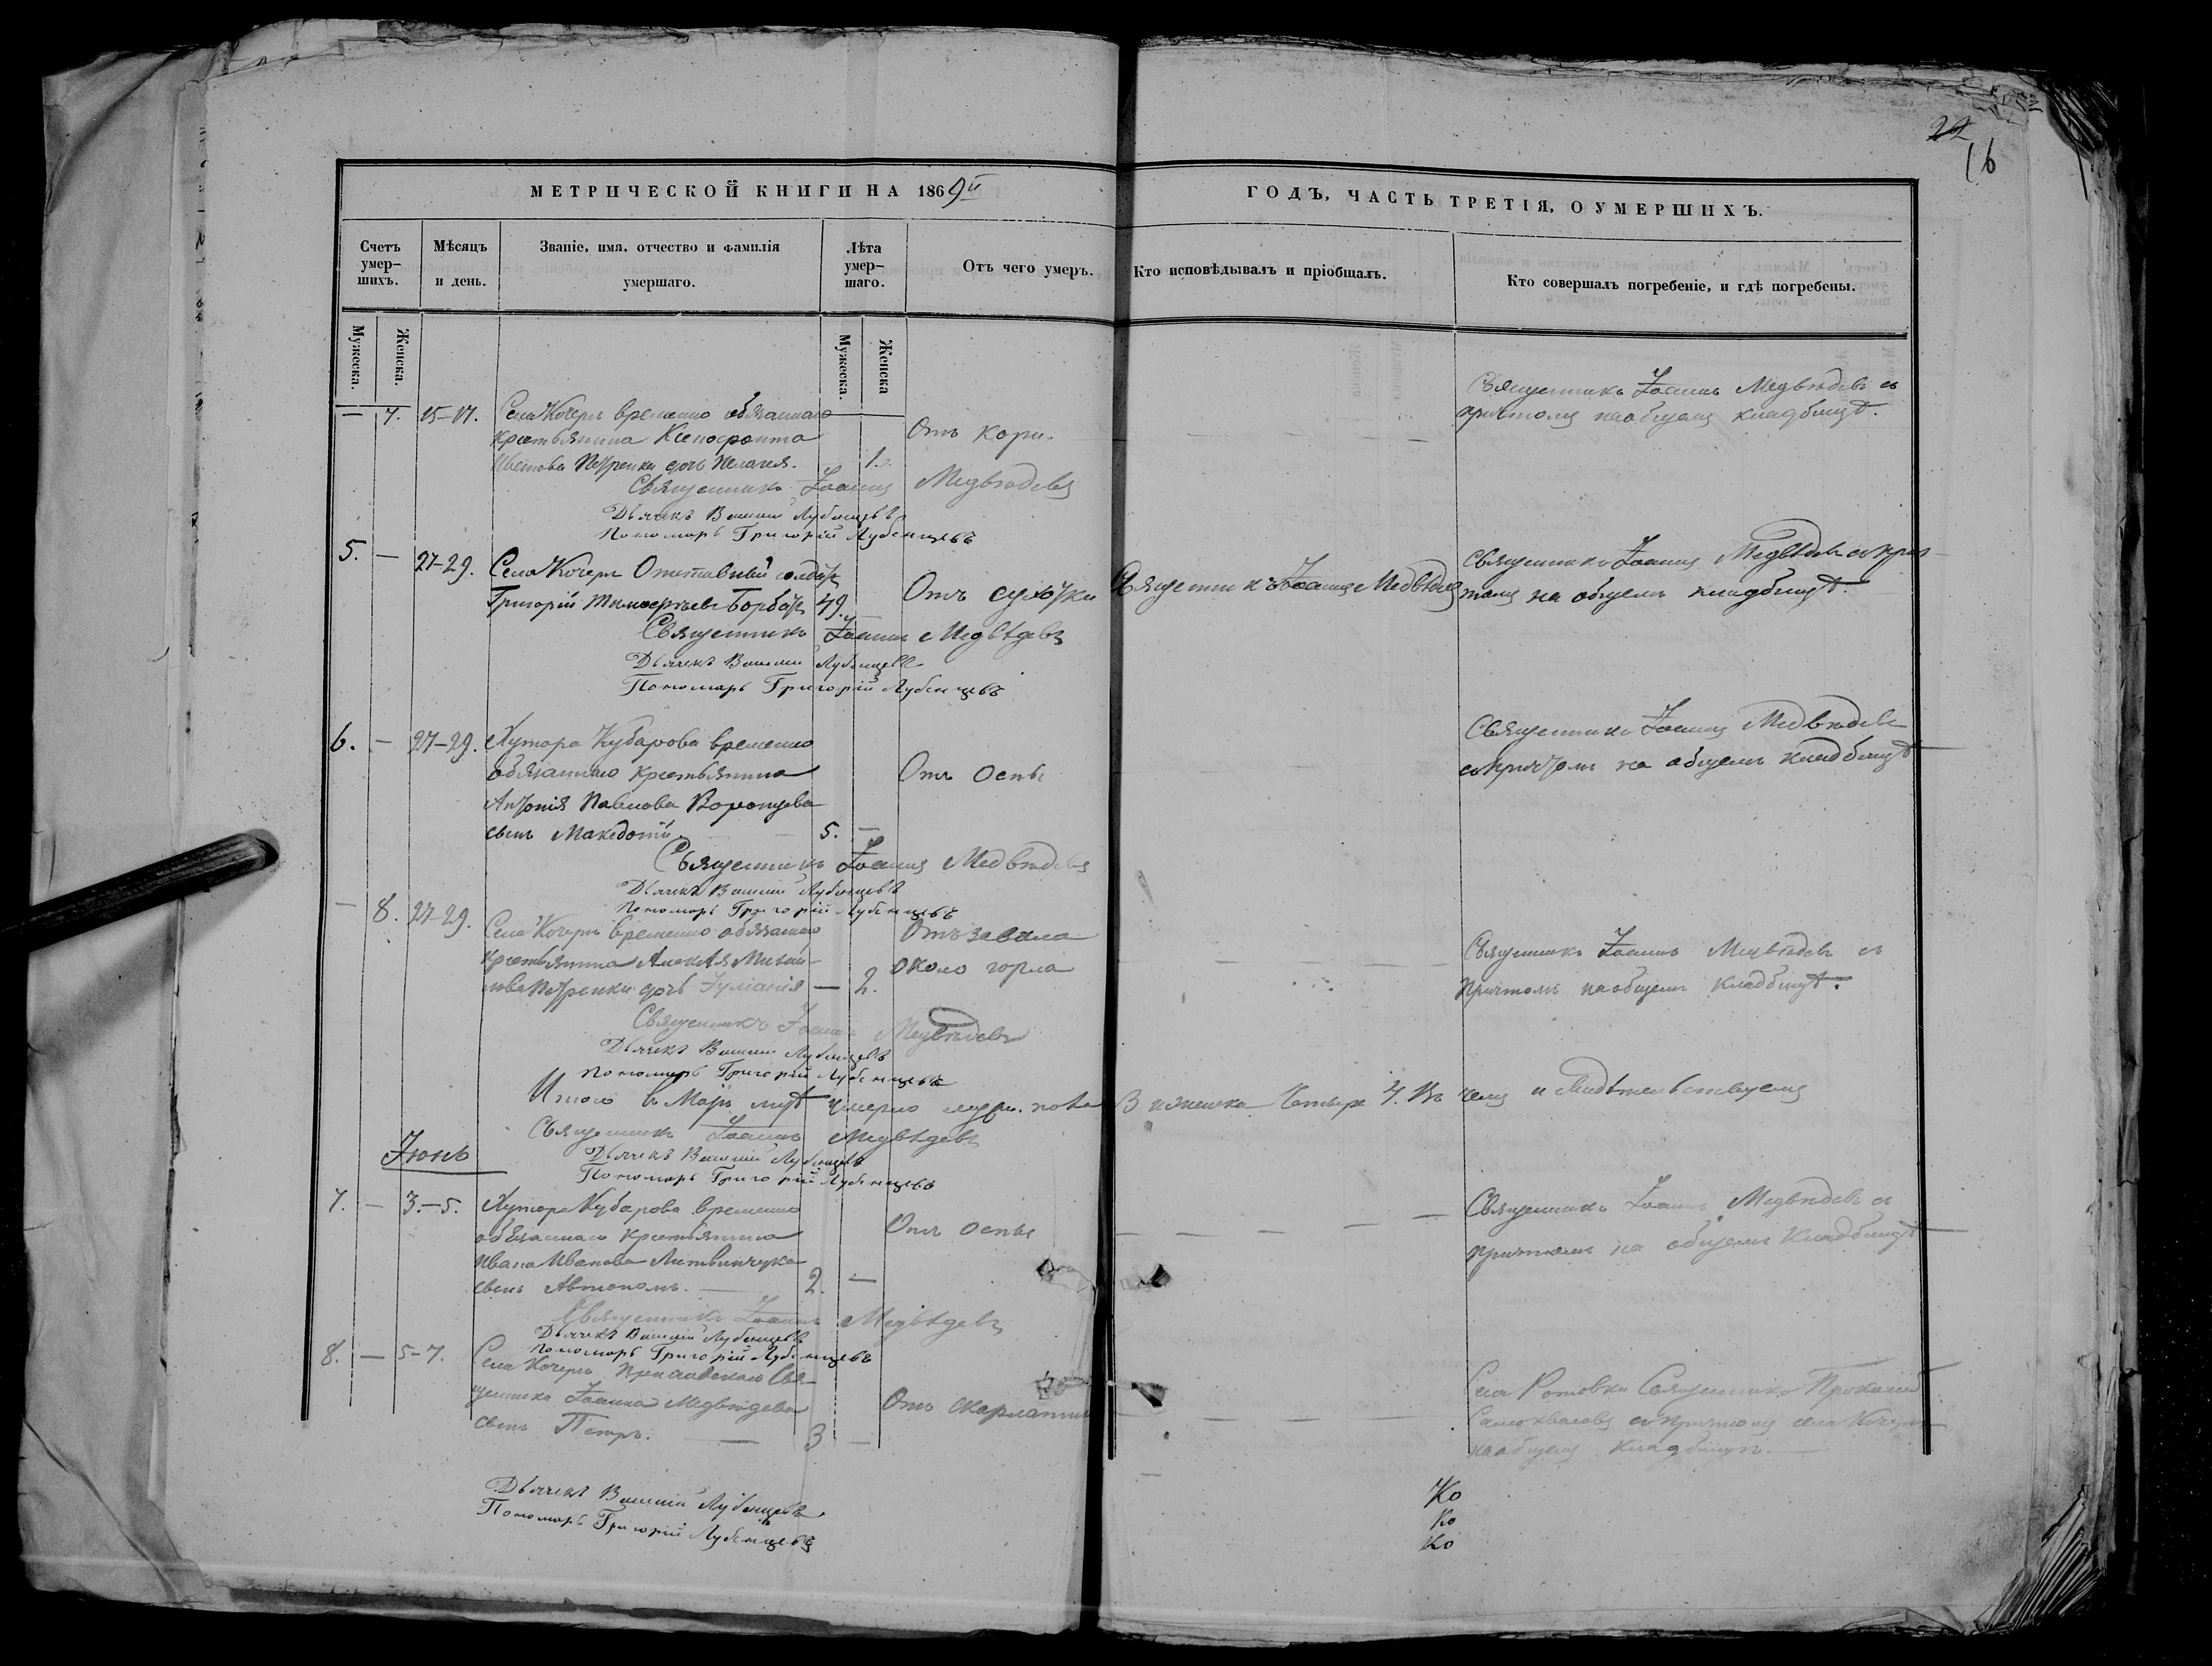 22
16
МЕТРИЧЕСКОЙ КНИГИ НА 1869й ГОДЪ, ЧАСТЬ ТРЕТІЯ, О УМЕРШИХЪ.
Счетъ умер-шихъ.
Мѣсяцъ и день.
Званіе, имя, отчество и фамилія умершаго.
Лѣта умер-шаго.
Отъ чего умеръ.
Кто исповѣдывалъ и пріобщалъ.
Кто совершалъ погребеніе, и гдѣ погребены.
Мужеска. Женска. Мужеска. Женска
— 7. 15-17. Села Кочеръ временно обязаннаго
крестьянина Ксенофонта
Петренки дочь Пелагея. 1.
Отъ кори.
Священникъ Іоаннъ Медвѣдевъ съ
причтомъ на общемъ кладбищѣ.
Священникъ Іоаннъ Медвѣдевъ
Дьячекъ Василій Лубенцевъ
Пономарь Григорій Лубенцевъ
5. — 27-29. Села Кочеръ Отставный солдатъ
Григорій Тимофеевъ 49.
Отъ сухотки
Священникъ Іоаннъ Медвѣдевъ
Священникъ Іоаннъ Медвѣдевъ съ прич-
томъ на общемъ кладбищѣ.
Священникъ Іоаннъ Медвѣдевъ
Дьячекъ Василій Лубенцевъ
Пономарь Григорій Лубенцевъ
6. — 27-29. Хутора Кубарова временно
обязаннаго крестьянина
Антонія Павлова Воронцева
сынъ Македоній. 5. —
Отъ оспы
Священникъ Іоаннъ Медвѣдевъ
съ причтомъ на общемъ кладбищѣ
Священникъ Іоаннъ Медвѣдевъ
Дьячекъ Василій Лубенцевъ
Пономарь Григорій Лубенцевъ
— 8. 27-29. Села Кочеръ временно обязаннаго
крестьянина Алексѣя Михай-
лова Петренки дочь Іуліанія — 2.
Отъ завала
около горла
Священникъ Іоаннъ Медвѣдевъ съ
причтомъ на общемъ кладбищѣ.
Священникъ Іоаннъ Медвѣдевъ
Дьячекъ Василій Лубенцевъ
Пономарь Григорій Лубенцевъ
Итого въ Маѣ умерло 3 женска четыре 4. Въ чемъ и свидѣтельствуемъ
Священникъ Іоаннъ Медвѣдевъ
Дьячекъ Василій Лубенцевъ
Пономарь Григорій Лубенцевъ
Іюнь
7. — 3.-5. Хутора Кубарова временно
обязаннаго крестьянина
Ивана Иванова Литвинчука
сынъ Автономъ. 2. —
Отъ оспы
Священникъ Іоаннъ Медвѣдевъ съ
причтомъ на общемъ кладбищѣ
Священникъ Іоаннъ Медвѣдевъ
Дьячекъ Василій Лубенцевъ
Пономарь Григорій Лубенцевъ
8. — 5-7. Села Кочеръ Свя-
щенника Іоанна Медвѣдева
сынъ Петръ. — 3 —
Отъ скарлатины
Села Ротовки Священникъ Прокопій
Самохваловъ съ причтомъ села Кочеръ
на общемъ кладбищѣ.
Дьячекъ Василій Лубенцевъ
Пономарь Григорій Лубенцевъ
Ко
Ко
Ко